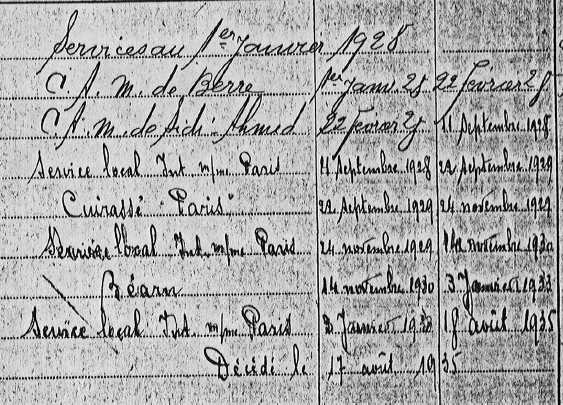 Services au 1er Janvier 1928
C. A. m. de Berre 1er Janv. 28 22 Février 28
C. A. m. de Sidi-Ahmed 22 Février 28 11 Septembre 1928
Service local Int. m/me Paris 11 Septembre 1928 22 Septembre 1929
Cuirassé "Paris" 22 Septembre 1929 24 novembre 1929
Service local Int. m/me Paris 24 novembre 1929 14 novembre 1930
Béarn 14 novembre 1930 3 Janvier 1933
Service local Int. m/me Paris 3 Janvier 1933 18 août 1935
Décédé le 17 août 1935